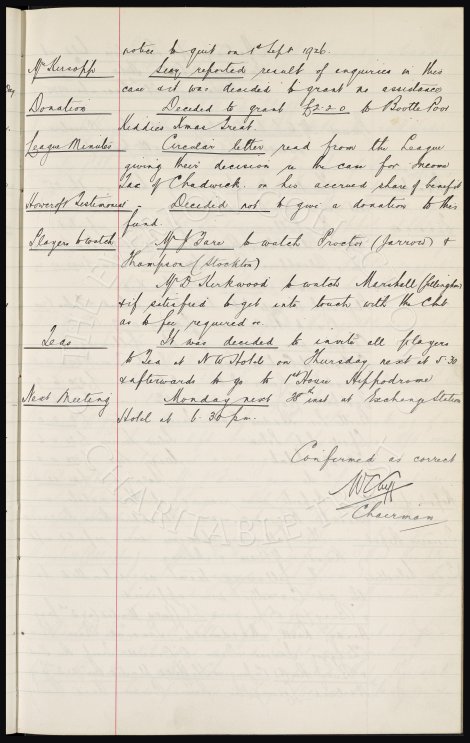 notice to quit on 1st Sept 1926.
Mr Kersopp Secy reported result of enquiries in this
case & it was decided to grant no assistance
Donation Decided to grant £2-2-0 to Bootle Poor
Kiddies Xmas Treat
League Minutes Circular letter read from the League
giving their decision in the case for Income
Tax of Chadwick. on his accrued share of benefit
Howcroft Testimonial - Decided not to give a donation to this
fund.
Players to watch Mr J Fare to watch Proctor (Jarrow) &
Thompson (Stockton)
Mr D Kirkwood to watch Marshall (Gillingham)
& if satisfied to get into touch with the Club
as to fee required &c
Teas It was decided to invite all players
to Tea at N W Hotel on Thursday next at 5-30
& afterwards to go to 1st House Hippodrome
Next Meeting Monday next inst at Exchange Station
Hotel at 6.30 pm.
Confirmed as correct
Chairman
CHARITABLE